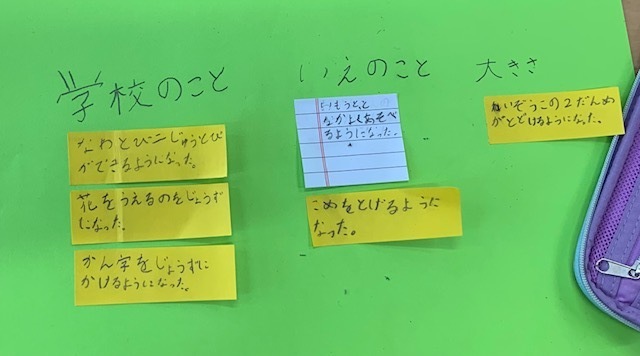 学校のこと
なわとび二じゅうとび
ができるようになった。
花をうえるのをじょうず
になった。
かん字をじょうずに
かけるようになった。
いえのこと
いもうとと
なかよくあそべ
るようになった。
こめをとげるように
なった。
大きさ
れいぞうこの2だんめ
がとどけるようになった。